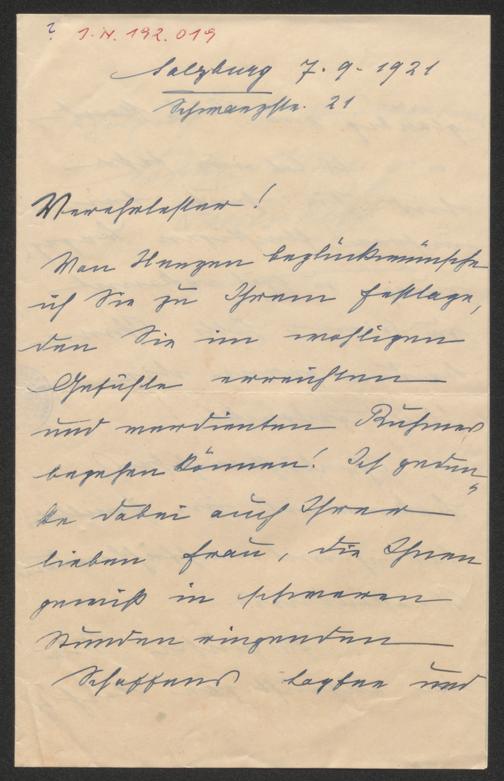 ? I.N. 192.019
Salzburg 7.9.1921
Schwarzstr. 21
Verehrtester!
Von Herzen beglückwünsche
ich Sie zu Ihrem Festtage,
den Sie im wohligen
Gefühle erreichten
und verdienten Ruhmes
begehen können! Ich geden-
ke dabei auch Ihrer
lieben Frau, die Ihnen
gewiß in schweren
Stunden ringenden
Schaffens tapfer und